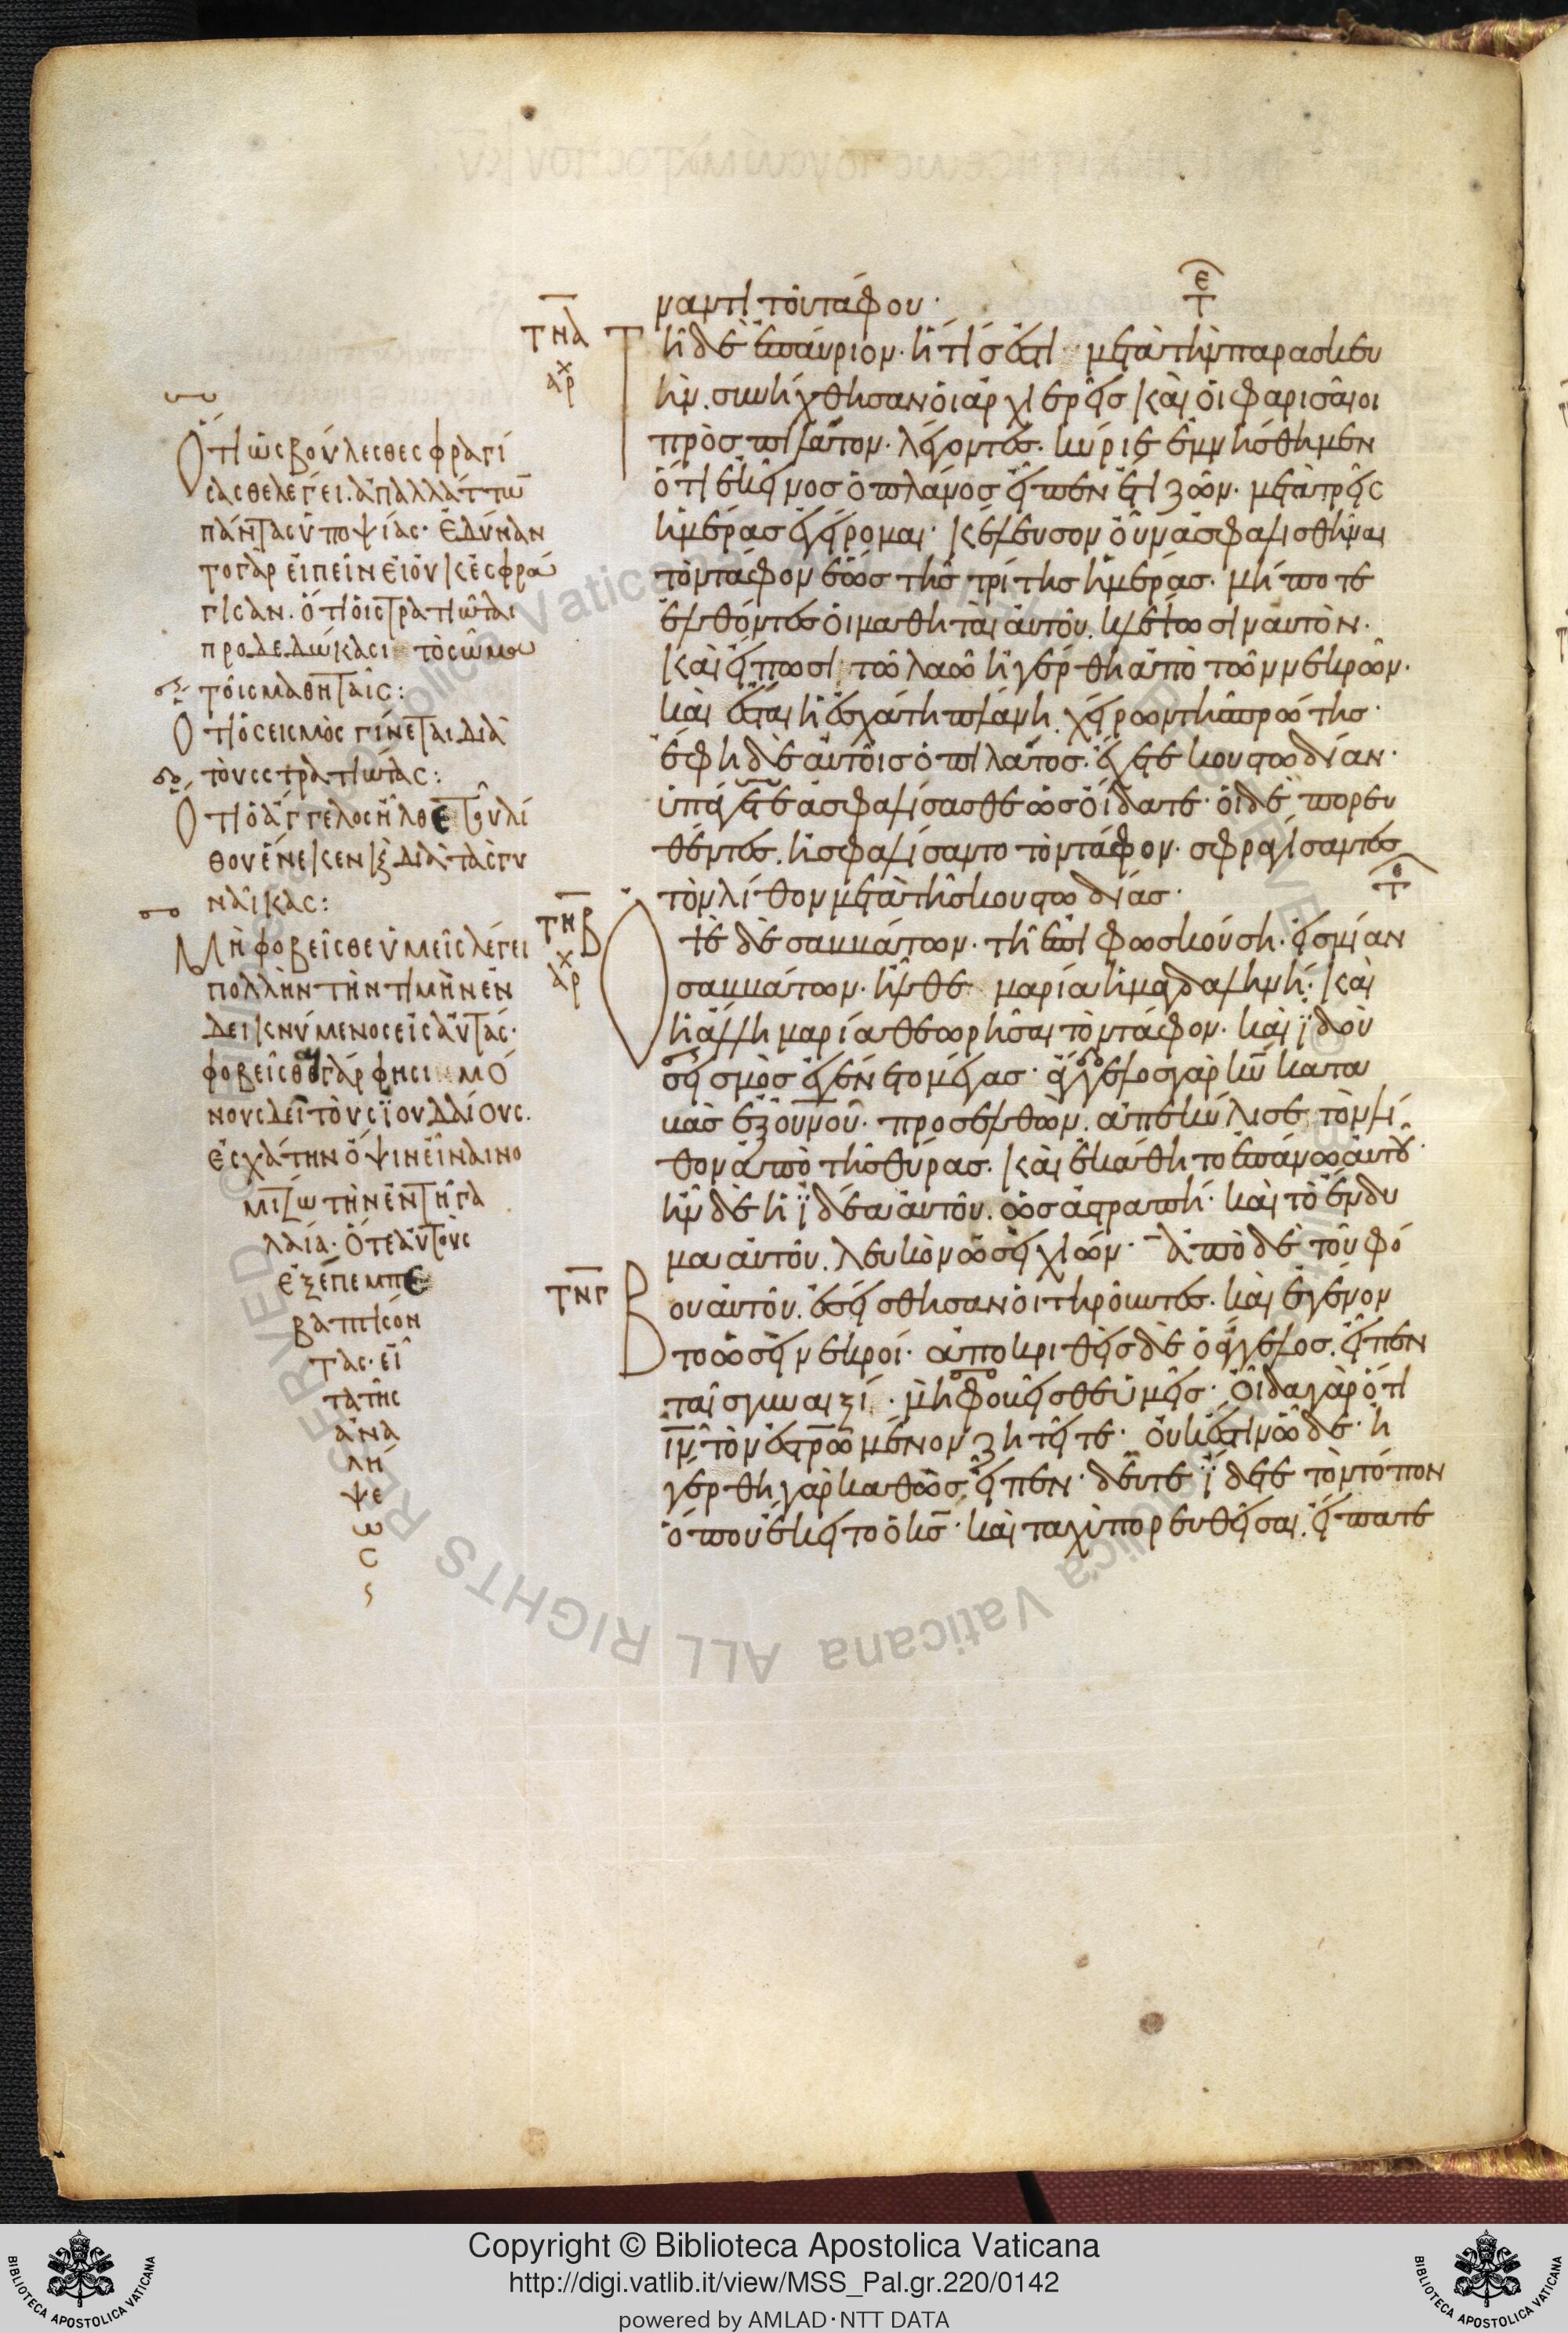 ναντι τοῦ τάφου·
τνα
αρχ
Τῆ δὲ ἐπάυριον· ἥτισ ἐστι μετὰ τὴν παρασκευ
ὴν. συνήχθησαν ὁι ἀρχιερεῖσ καὶ ὁι φαρισᾶιοι
πρὸσ πιλᾶτον· λέγοντεσ· κύριε ἐμνήσθημεν
ὅτι ἐκεῖνοσ ὁ πλάνοσ εἶπεν ἔτι ζῶν· μετὰ τρεῖς
ἡμέρασ ἐγείρομαι· κέλευσον οὖν ἀσφαλισθῆναι
τὸν τάφον ἕωσ τῆσ τρίτησ ἡμέρασ· μήποτε
ἐλθόντεσ ὁι μαθηταὶ ἀυτοῦ. κλέψωσιν ἀυτὸν·
καὶ εἴπωσι τῶ λαῶ ἠγέρθη ἀπὸ τῶν νεκρῶν·
καὶ ἔσται ἡ ἐσχάτη πλάνη. χείρων τῆσ πρώτησ·
ἔφη δὲ ἀυτοῖσ ὁ πιλάτοσ· ἔχετε κουστωδίαν·
ὑπάγετε ἀσφαλίσασθε ὡσ ὀίδατε· ὁι δὲ πορευ
θέντεσ. ἠσφαλίσαντο τὸν τάφον· σφραγίσαντεσ
τὸν λίθον μετὰ τῆσ κουστωδίασ·
τνβ
αρχ
Ὀτὲ δὲ σαββάτων· τῆ ἐπιφωσκούση· εἰσ μίαν
σαββάτων· ἦλθε μαρία ἡ μαγδαληνή· καὶ
ἡ ἄλλη μαρία θεωρῆσαι τὸν τάφον· καὶ ϊδοὺ
σεισμὸσ ἐγένετο μέγασ· ἄγγελοσ γὰρ κῡ καταβ
ὰσ ἐξ οῡνοῦ· προσελθὼν. ἀπεκύλισε τὸν λί
θον ἀπὸ τῆσ θύρασ· καὶ ἐκάθητο ἐπάνω ἀυτοῦ·
ἦν δὲ ἡ ϊδέα ἀυτοῦ. ὡσ ἀστραπή· καὶ τὸ ἔνδυ
μα ἀυτοῦ. λευκὸν ὡσεὶ χιών· ἀπὸ δὲ τοῦ φό
τνγ
Βου ἀυτοῦ. ἐσείσθησαν ὁι τηροῦντεσ· καὶ ἐγένον
το ὡσεὶ νεκροί· ἀποκριθεὶσ δὲ ὁ ἄγγελοσ. εἶπεν
ταῖσ γυναιξί· μὴ φοβεῖσθε ὑμεῖσ· ὀῖδα γὰρ ὅτι
ιν̄ τὸν ἐστρωμένον ζητεῖτε· ὀυκ ἔστιν ὧδε· ἠ
γέρθη γὰρ καθὼσ εἶπεν· δεῦτε ϊδετε τὸν τόπον
ὅπου ἔκειτο ὁ κσ̄· καὶ ταχὺ πορευθεῖσαι. εἴπατε
Ὅτι ὡς βούλεσθε σφραγί
σασθε λέγει. ἀπαλλάττω
πάντας ὑποψίας· ἐδύναν
το γὰρ εἰπεῖν εἰ οὐκ ἐσφρά
γισαν. ὅτι ὁι στρατιῶται
προδεδώκασι τὸ σῶμα
τοῖς μαθηταῖς:
Ὅτι ὁ σεισμὸς γίνεται διὰ
τοὺς στρατιώτας:
Ὅτι ὁ ἄγγελος ἦλθε τοῦ λί
θου ἕνεκεν κ̀ διὰ τὰς γυ
ναῖκας:
Μὴ φοβεῖσθε ὑμεῖς λέγει
πολλὴν τὴν τιμὴν ἐν
δεικνύμενος εἰς αὐτάς·
φοβεῖσθαι γάρ φησι μό
νους δεῖ τοὺς ϊουδαίους.
ἐσχάτην ὄψιν εἶναι νο
μίζω τὴν ἐν τῆ γα
λαία· ὅτε αὐτοὺς
ἐξέπεμπε
βαπτίσον
τας· εἶ
τα τῆς
ἀνα
λή
ψε
ω
ς
Copyright © Biblioteca Apostolica Vaticana
http://digi.vatlib.it/view/MSS_Pal.gr.220/0142
powered by AMLAD·NTT DATA
BIBLIOTECA APOSTOLICA VATICANA
BIBLIOTECA APOSTOLICA VATICANA